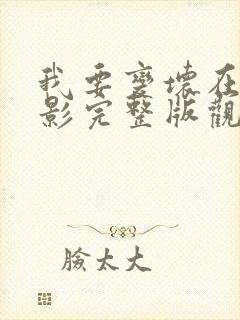 我要變壞在
影完整版觀
臉太大